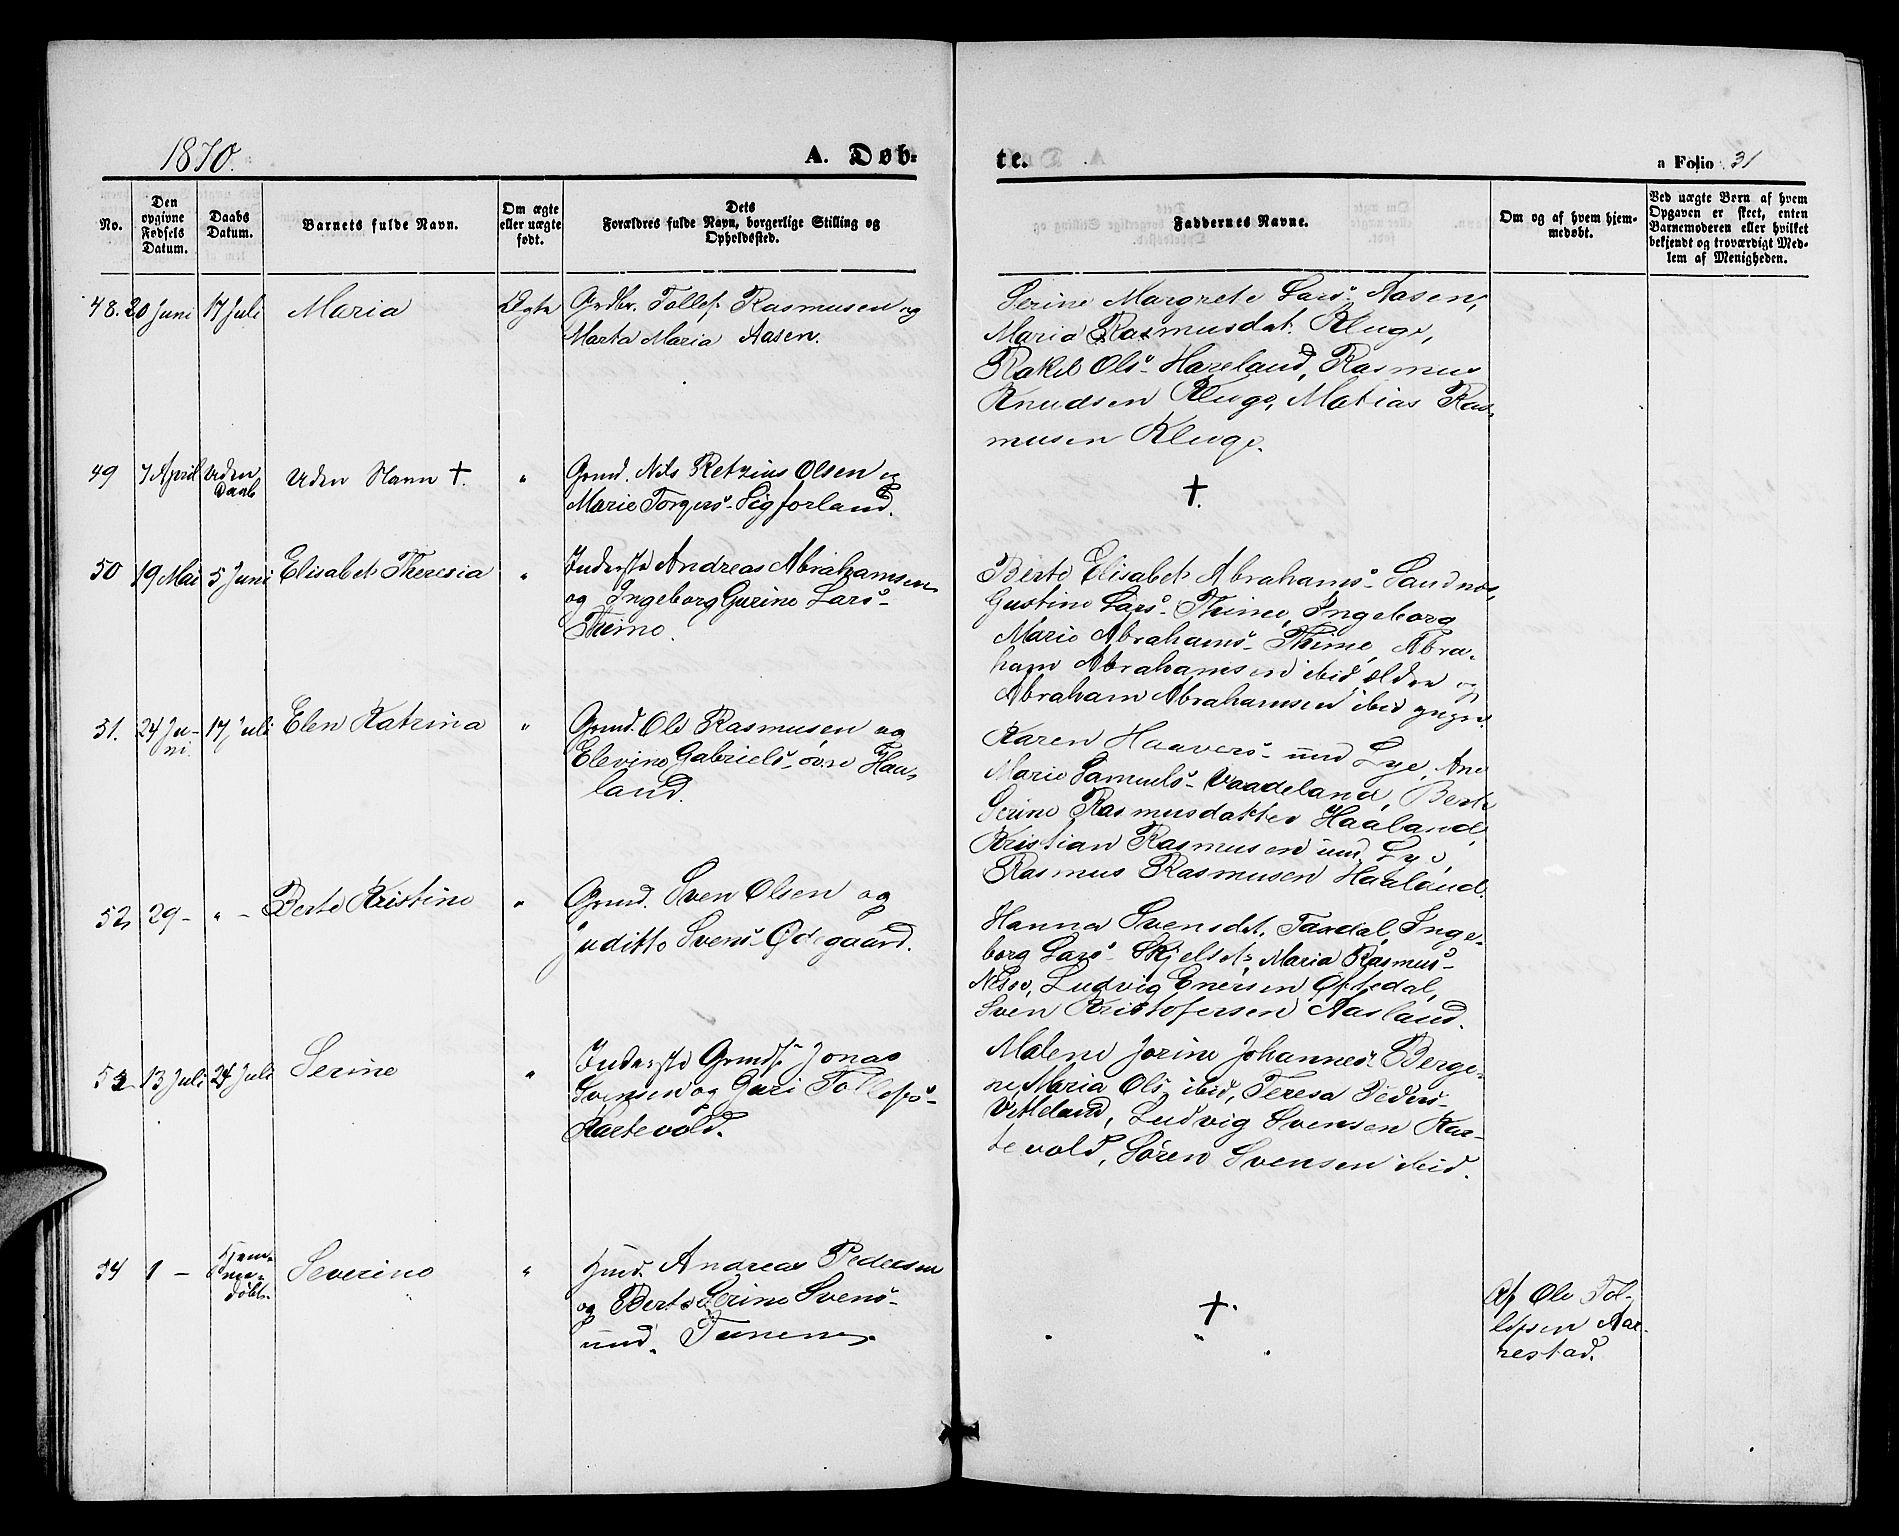 1870.
A. Døb-
te.
a Folio 31
No.
Den
opgivne
Fødsels
Datum.
Daabs
Datum.
Barnets fulde Navn.
Om ægte
eller uægte
født.
Dets
Forældres fulde Navn, borgerlige Stilling og
Opholdssted.
Faddernes Navne.
Om og af hvem hjem-
medøbt.
Ved uægte Børn af hvem
Opgaven er skeet, enten
Barnemoderen eller hvilket
bekjendt og troværdigt Med-
lem af Menigheden.
48. 20 Juni 17 Juli Maria Ægte
Tollef Rasmusen og
Marta Maria Aasen.
Serine Margrete Lars- Aasen,
Maria Rasmusdat. Kluge,
Rakel Ols- Hareland, Rasmus
Knudsen Kluge, Matias Ras-
musen Kluge.
49 7 April Uden
Daab
Uden Navn †. "
Grmd. Nils Retzius Olsen og
Marie Torgers- Sigforland.
†.
50 19 Mai 5 Juni Elisabet Theresia "
Inderste Andreas Abrahamsen
og Ingeborg Gurine Lars-
Thime.
Berte Elisabet Abrahams- Sandnes,
Gustine Lars- Thime, Ingeborg
Marie Abrahams- Thime, Abra-
ham Abrahamsen ibid ældre og
Abraham Abrahamsen ibid yngre.
51. 24 Ju-
ni 17 Juli Elen Katrina "
Grmd. Ole Rasmusen og
Elevine Gabriels- øvre Haa-
land.
Karen Haavers- und Lye, Ane
Marie Samuels- Vaadeland, Berte
Serine Rasmusdatter Haaland,
Kristian Rasmusen und. Lye,
Rasmus Rasmusen Haaland.
52, 29- " - Berte Kristine "
Grmd. Sven Olsen og
Juditte Svens- Ødegaard.
Hanna Svensdt. Taxdal, Inge-
borg Lars- Skjelst, Maria Rasmus-
Nesse, Ludvig Enersen Oftedal,
Sven Kristofersen Aasland.
53 13 Juli 24 Juli Serine "
Inderste Grmdf. Jonas
Svensen og Guri Tollefs-
Kartevold.
Malene Jorine Johannes- Berge-
ne, Maria Ols- ibid, Teresa Peders-
Vetteland, Ludvig Svensen Kar-
tevold, Sören Svensen ibid.
54 1 - Hjem-
me-
døbt.
Severine "
Hmd. Andreas Pedersen
og Berte Serine Svens-
und. Tunem
†.
Af Ole Tol-
lefsen Aar-
restad.